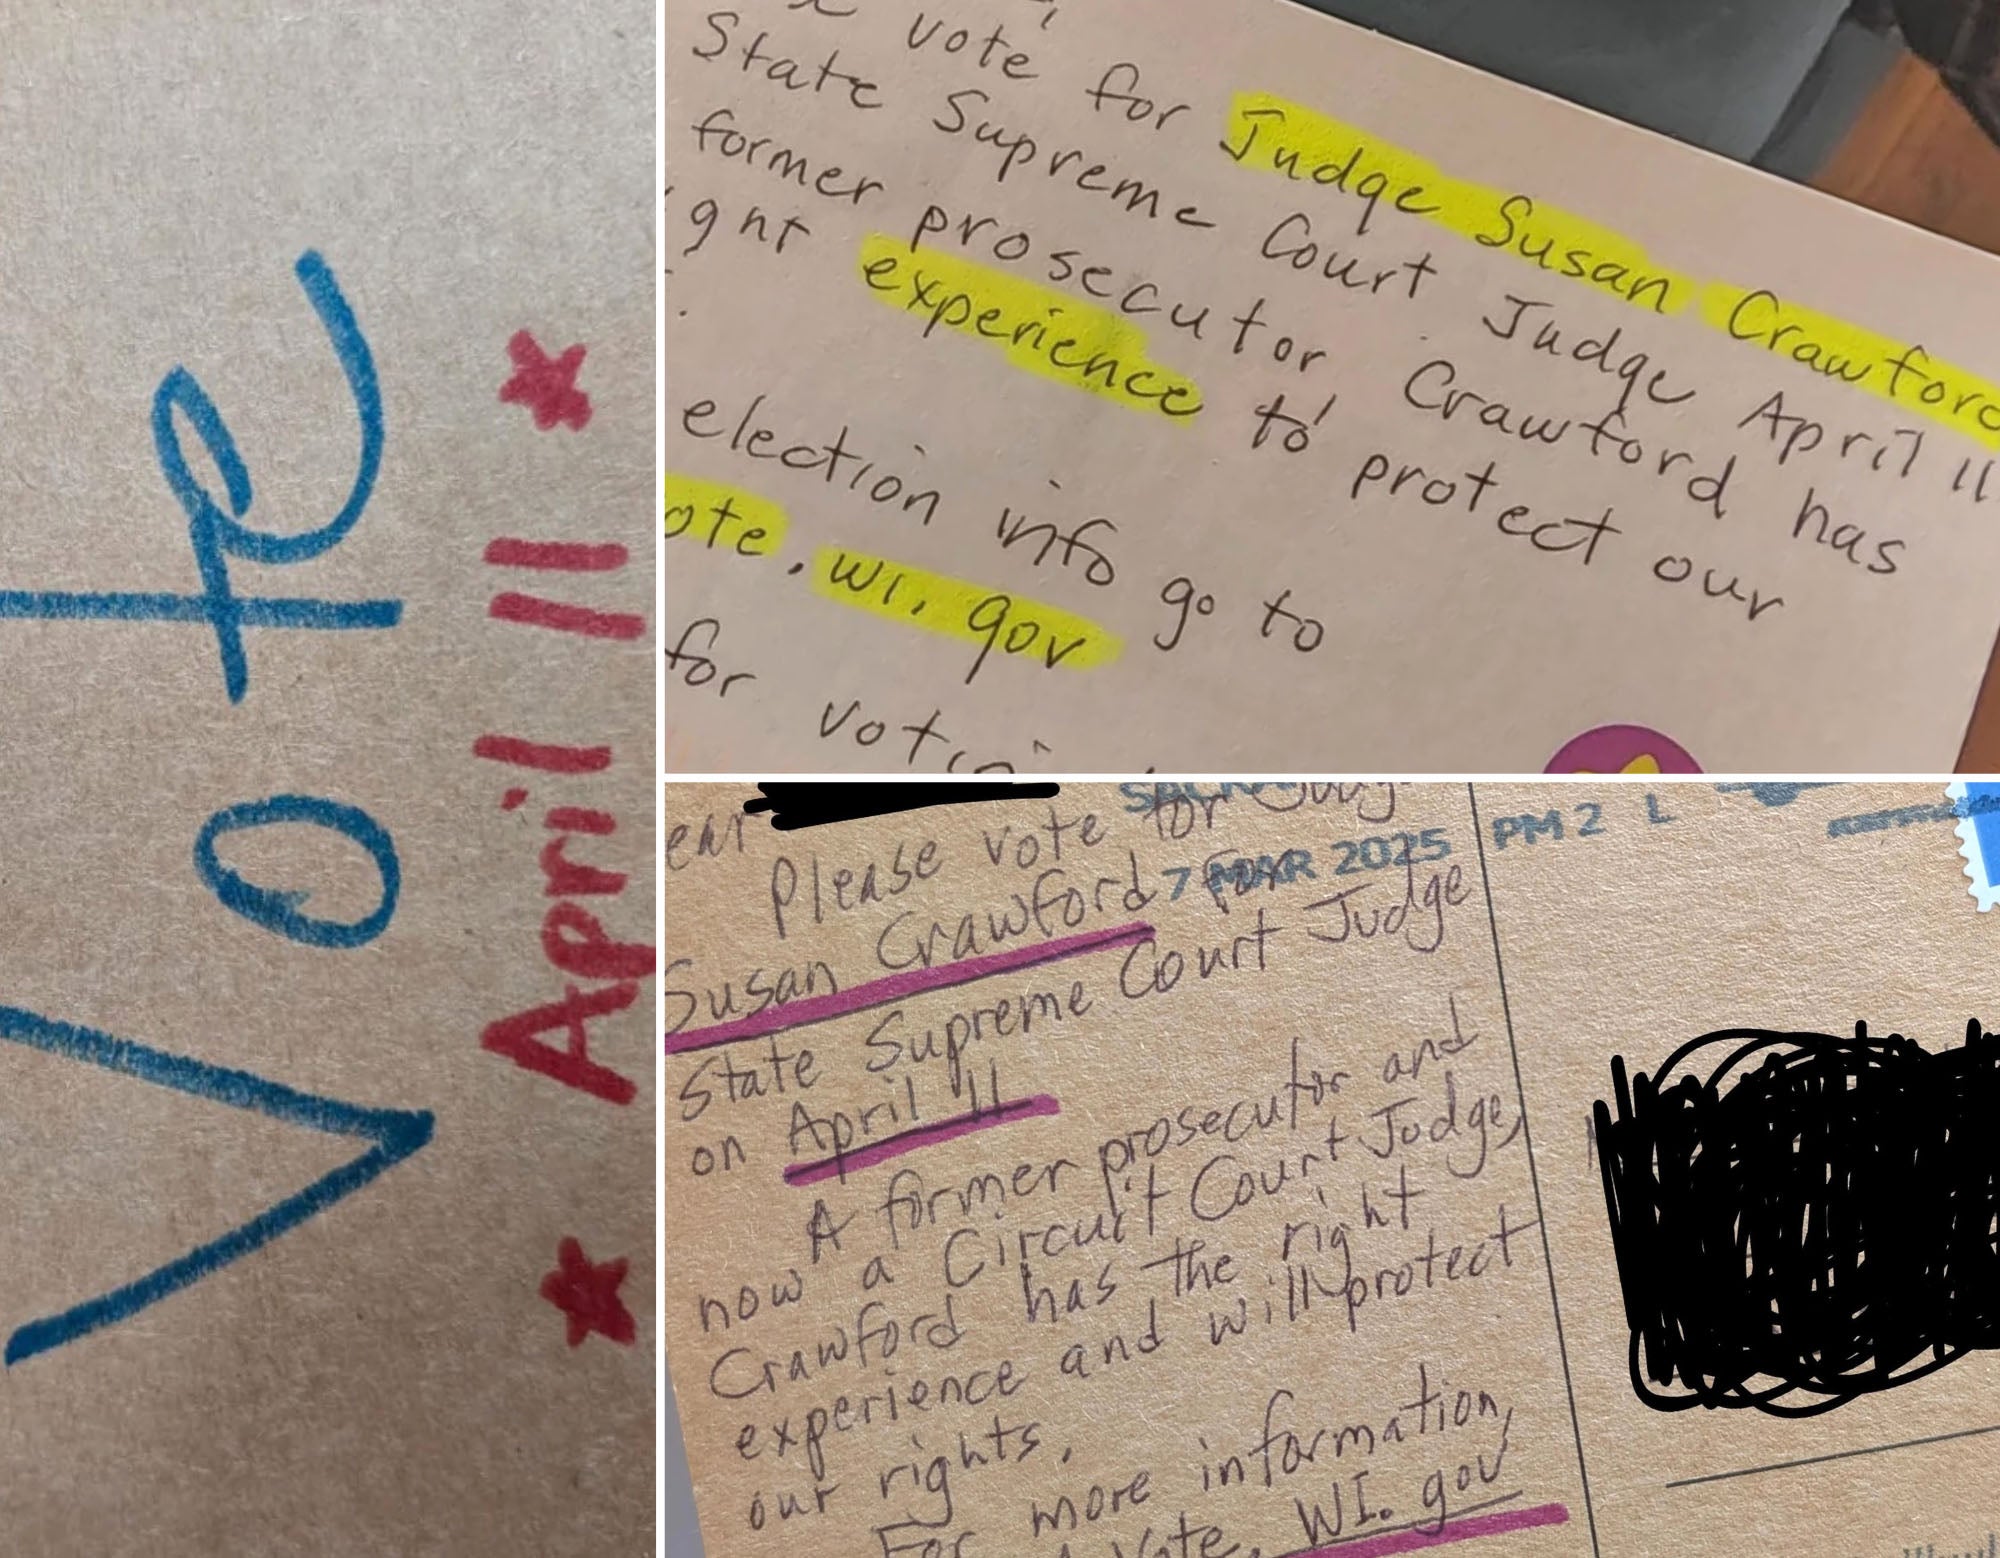 Vote
April 11
vote for Judge Susan Crawford
State Supreme Court Judge April 11
former prosecutor Crawford has
experience to protect our
election info go to
ote. wi. gov
for
ear
Please vote for Judg
Susan Crawford for
State Supreme Court Judge
on April 11
A former prosecutor and
now a Circuit Court Judge,
Crawford has the right
experience and will protect
our rights.
For more information,
Vote. WI. gov
7 MAR 2025 PM 2 L